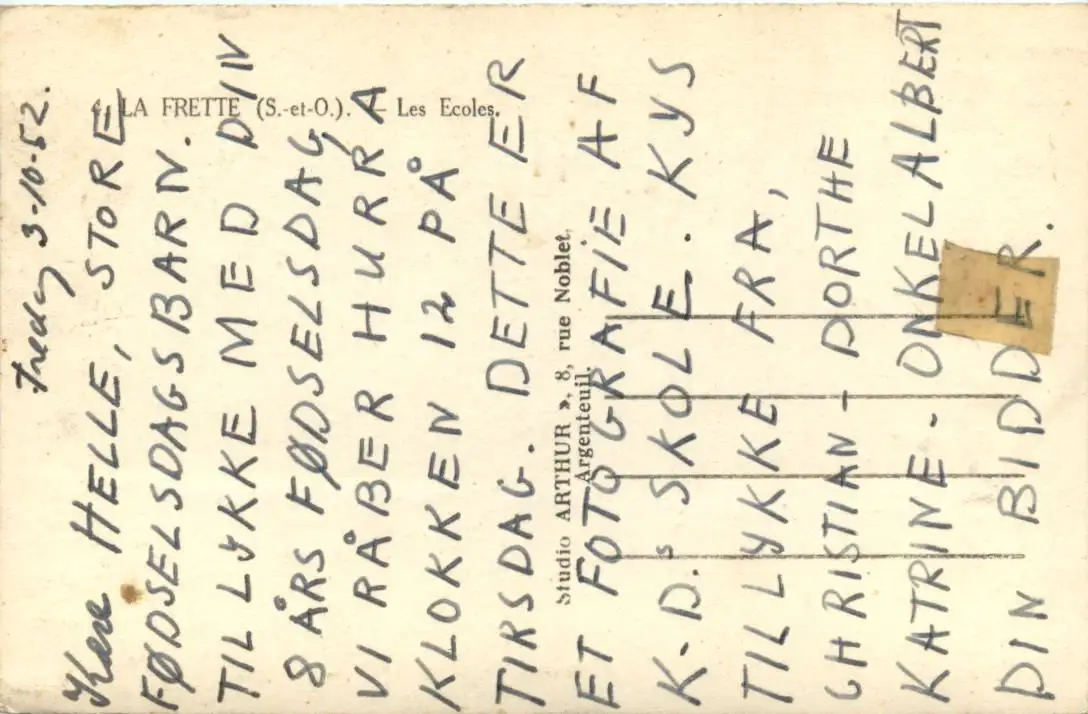 Fredag 3-10-52.
Kære HELLE, STORE
FØDSELSDAGSBARN.
TILLYKKE MED DIN
8 ÅRS FØDSELSDAG,
VI RÅBER HURRA
KLOKKEN 12 PÅ
TIRSDAG. DETTE ER
ET FOTOGRAFIE AF
K-D.s SKOLE. KYS
TILLYKKE FRA,
CHRISTIAN - DORTHE
KATRINE. ONKEL ALBERT
DIN BIDDER.
4. LA FRETTE (S.-et-O.). — Les Ecoles.
Studio ARTHUR », 8, rue Noblet,
Argenteuil.